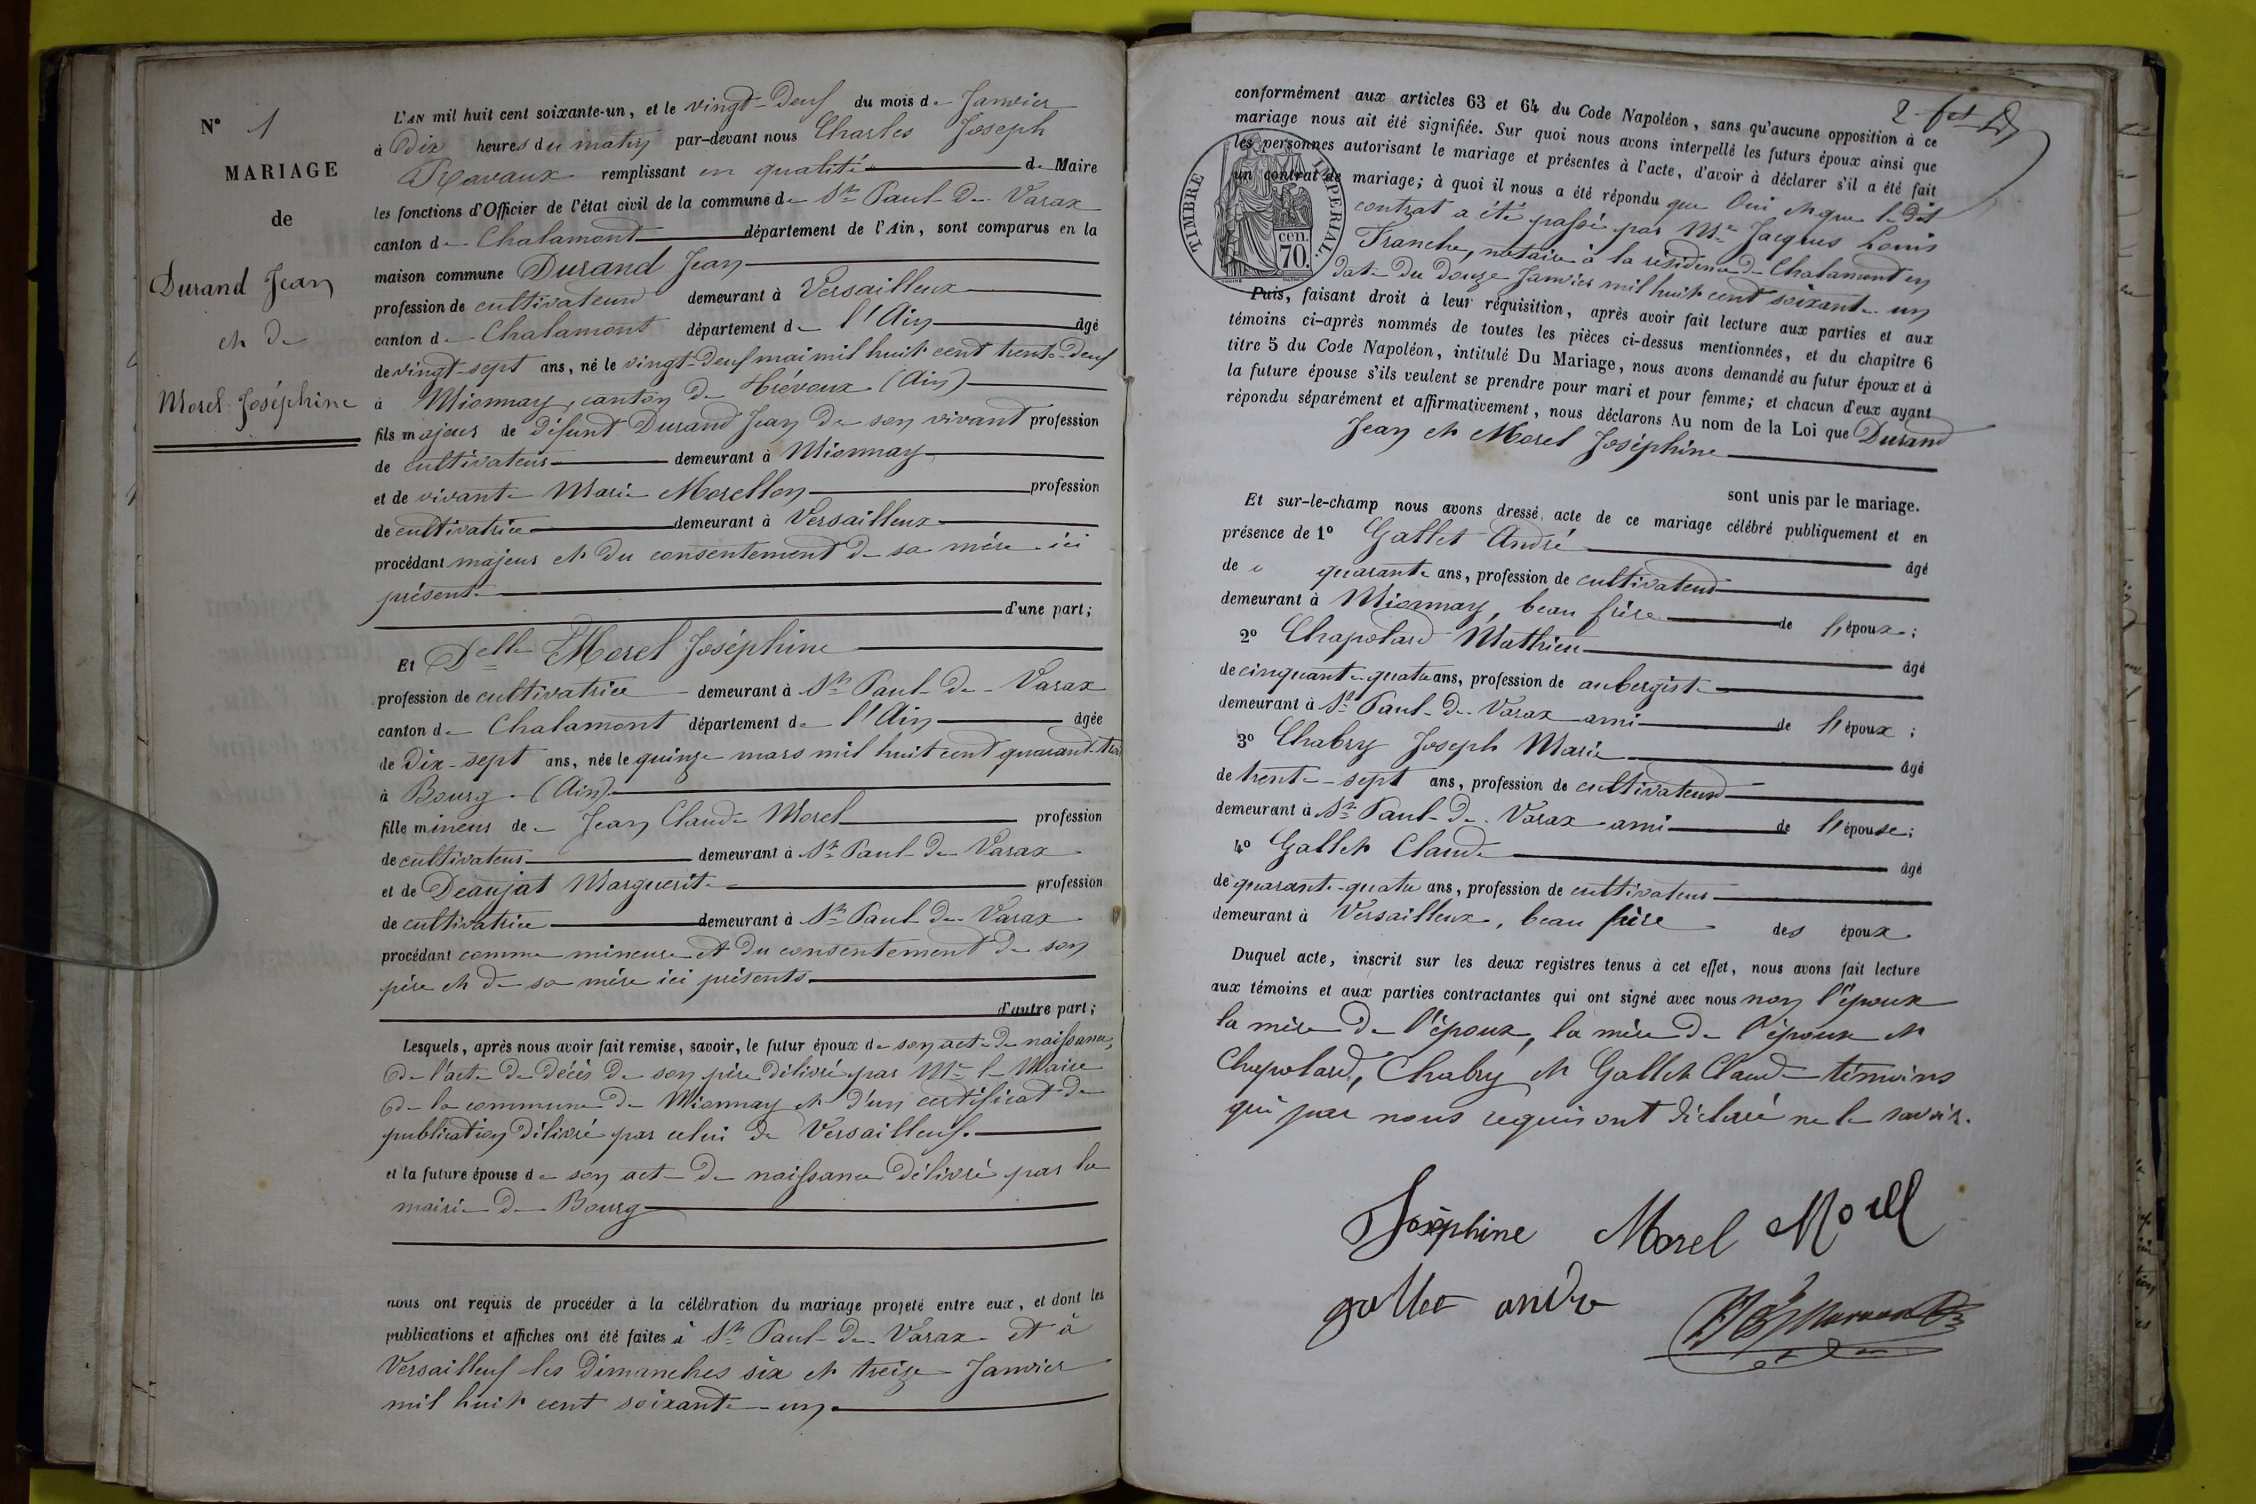 N° 1
MARIAGE
de
Durand Jean
et de
Morel Joséphine
L'AN mil huit cent soixante-un, et le vingt-deux du mois de Janvier
à Dix heures du matin par-devant nous Charles Joseph
Ravaux remplissant en qualité de Maire
les fonctions d'Officier de l'état civil de la commune de St Paul-de-Varax
canton de Chalamont département de l'Ain, sont comparus en la
maison commune Durand Jean
profession de cultivateur demeurant à Versailleux
canton de Chalamont département de l'Ain âgé
de vingt-sept ans, né le vingt-deux mai mil huit cent trente-deux
à Mionnay, canton de Trévoux (Ain)
fils majeur de défunt Durand Jean de son vivant profession
de cultivateur demeurant à Mionnay
et de vivante Marie Morellon profession
de cultivatrice demeurant à Versailleux
procédant majeur et du consentement de sa mère ici
présente
d'une part;
Et Delle Morel Joséphine
profession de cultivatrice demeurant à St Paul-de-Varax
canton de Chalamont département de l'Ain âgée
de dix-sept ans, née le quinze mars mil huit cent quarante-trois
à Bourg (Ain)
fille mineur de Jean Claude Morel profession
de cultivateur demeurant à St Paul-de-Varax
et de Deaujat Marguerite profession
de cultivatrice demeurant à St Paul-de-Varax
procédant comme mineure et du consentement de son
père et de sa mère ici présents
d'autre part;
Lesquels, après nous avoir fait remise, savoir, le futur époux de son acte de naissance,
de l'acte de décès de son père délivré par Mr le Maire
de la commune de Mionnay et d'un certificat de
publication délivré par celui de Versailleux.
et la future épouse de son acte de naissance délivré par la
mairie de Bourg
nous ont requis de procéder à la célébration du mariage projeté entre eux, et dont les
publications et affiches ont été faites à St Paul-de-Varax et à
Versailleux les Dimanches six et treize Janvier
mil huit cent soixante-un
2
conformément aux articles 63 et 64 du Code Napoléon, sans qu'aucune opposition à ce
mariage nous ait été signifiée. Sur quoi nous avons interpellé les futurs époux ainsi que
les personnes autorisant le mariage et présentes à l'acte, d'avoir à déclarer s'il a été fait
un contrat de mariage; à quoi il nous a été répondu que Oui et que le dit
contrat a été passé par Me Jacques Louis
Tranche, notaire à la résidence de Chalamont en
date du douze Janvier mil huit cent soixante un
TIMBRE IMPERIAL.
cen.
70.
Puis, faisant droit à leur réquisition, après avoir fait lecture aux parties et aux
témoins ci-après nommés de toutes les pièces ci-dessus mentionnées, et du chapitre 6
titre 5 du Code Napoléon, intitulé Du Mariage, nous avons demandé au futur époux et à
la future épouse s'ils veulent se prendre pour mari et pour femme; et chacun d'eux ayant
répondu séparément et affirmativement, nous déclarons Au nom de la Loi que Durand
Jean et Morel Joséphine
sont unis par le mariage.
Et sur-le-champ nous avons dressé acte de ce mariage célébré publiquement et en
présence de 1° Gallet André âgé
de quarante ans, profession de cultivateur
demeurant à Mionnay, beau frère de l'époux;
2° Chapolard Mathieu âgé
de cinquante-quatre ans, profession de aubergiste
demeurant à St Paul-de-Varax ami de l'époux;
3° Chabry Joseph Marie âgé
de trente-sept ans, profession de cultivateur
demeurant à St Paul-de-Varax ami de l'épouse;
4° Gallet Claude âgé
de quarante-quatre ans, profession de cultivateur
demeurant à Versailleux, beau frère des époux
Duquel acte, inscrit sur les deux registres tenus à cet effet, nous avons fait lecture
aux témoins et aux parties contractantes qui ont signé avec nous non l'époux
la mère de l'époux, la mère de l'épouse et
Chapolard, Chabry et Gallet Claude témoins
qui par nous requis ont déclaré ne le savoir.
Joséphine Morel Morel
gallet andré